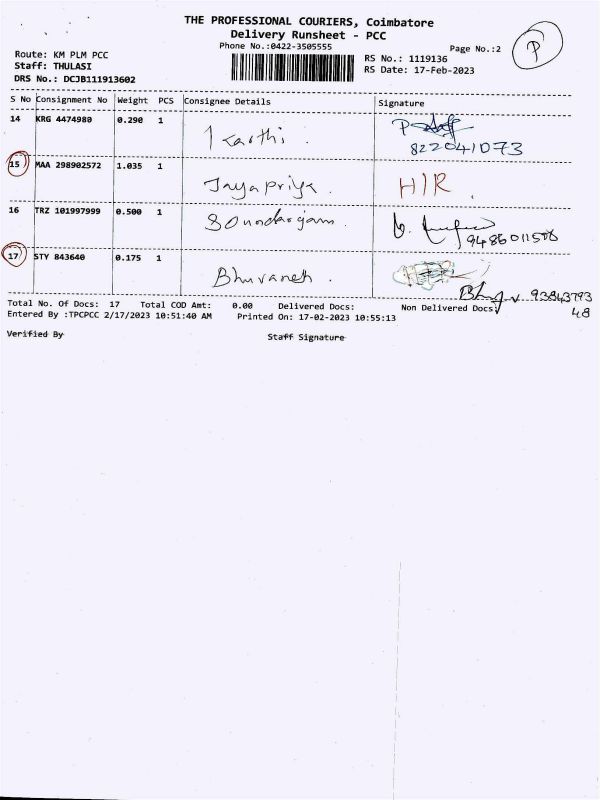 THE PROFESSIONAL COURIERS, Coimbatore
Delivery Runsheet - PCC
Phone No.:0422-3505555
Page No.:2
P
Route: KM PLM PCC
Staff: THULASI
DRS No.: DCJB111913602
RS No.: 1119136
RS Date: 17-Feb-2023
S No Consignment No Weight PCS Consignee Details Signature
14 KRG 4474980 0.290 1 Karthi
822041073
15 MAA 298902572 1.035 1 Jaya priya. H/R
16 TRZ 101997999 0.500 1
17 STY 843640 0.175 1 Bhuvanesh
93843793
48
Total No. Of Docs: 17 Total COD Amt: 0.00 Delivered Docs: Non Delivered Docs:
Entered By :TPCPCC 2/17/2023 10:51:40 AM Printed On: 17-02-2023 10:55:13
Verified By Staff Signature